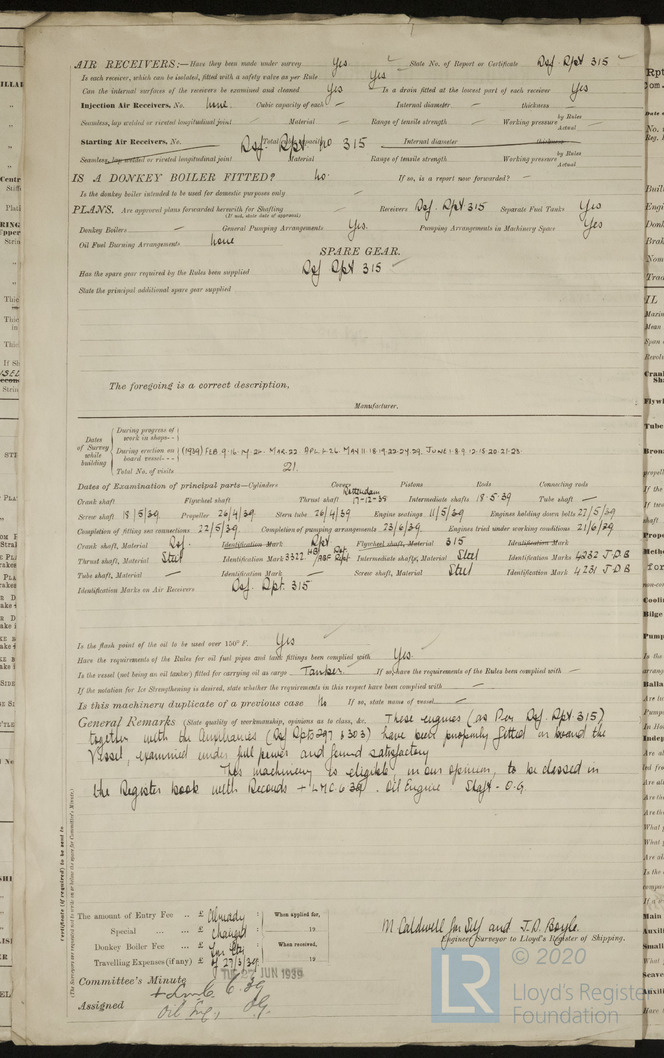 AIR RECEIVERS:—Have they been made under survey Yes State No. of Report or Certificate Def. Rpt 315
Is each receiver, which can be isolated, fitted with a safety valve as per Rule Yes
Can the internal surfaces of the receivers be examined and cleaned Yes Is a drain fitted at the lowest part of each receiver Yes
Injection Air Receivers, No. none Cubic capacity of each — Internal diameter — thickness —
Seamless, lap welded or riveted longitudinal joint Material — Range of tensile strength — Working pressure by Rules Actual
Starting Air Receivers, No. Def. Rpt no 315 Total cubic capacity Internal diameter thickness
Seamless, lap welded or riveted longitudinal joint Material Range of tensile strength Working pressure by Rules Actual
IS A DONKEY BOILER FITTED? No. If so, is a report now forwarded? —
Is the donkey boiler intended to be used for domestic purposes only —
PLANS. Are approved plans forwarded herewith for Shafting — Receivers Def. Rpt 315 Separate Fuel Tanks Yes
(If not, state date of approval)
Donkey Boilers — General Pumping Arrangements Yes. Pumping Arrangements in Machinery Space Yes
Oil Fuel Burning Arrangements none
SPARE GEAR.
Has the spare gear required by the Rules been supplied Def Rpt 315
State the principal additional spare gear supplied
The foregoing is a correct description,
Manufacturer.
Dates of Survey while building
During progress of work in shops - -
During erection on board vessel - - - (1939) FEB. 9.16.17.24. MAR.22. APL.1.26. MAY 11.18.19.22.24.29. JUNE 1.8.9.12.15.20.21.23
Total No. of visits 21.
Dates of Examination of principal parts—Cylinders Covers Pistons Rods Connecting rods
Crank shaft Flywheel shaft Thrust shaft Rotterdam 17-12-38 Intermediate shafts 18.5.39 Tube shaft —
Screw shaft 18/5/39 Propeller 26/4/39 Stern tube 26/4/39 Engine seatings 11/5/39 Engines holding down bolts 27/5/39
Completion of fitting sea connections 22/5/39 Completion of pumping arrangements 23/6/39 Engines tried under working conditions 21/6/39
Crank shaft, Material Def. Identification Mark Rpt Flywheel shaft, Material 315 Identification Mark
Thrust shaft, Material Steel Identification Mark 3322 Intermediate shafts, Material Steel Identification Marks 4232 J D B
Tube shaft, Material — Identification Mark — Screw shaft, Material Steel Identification Mark 4231 J.D.B
Identification Marks on Air Receivers Def. Rpt. 315
Is the flash point of the oil to be used over 150° F. Yes
Have the requirements of the Rules for oil fuel pipes and tank fittings been complied with Yes.
Is the vessel (not being an oil tanker) fitted for carrying oil as cargo Tanker If so, have the requirements of the Rules been complied with —
If the notation for Ice Strengthening is desired, state whether the requirements in this respect have been complied with —
Is this machinery duplicate of a previous case No If so, state name of vessel —
General Remarks (State quality of workmanship, opinions as to class, &c. These engines (as Per Def. Rpt 315)
together with the Auxiliaries (Def Rpts 297 & 303) have been properly fitted on board the
Vessel, examined under full power and found satisfactory
This machinery is eligible, in our opinion, to be classed in
the Register book with Records + LMC 6 39. Oil Engine. Shaft - O.G.
Certificate (if required) to be sent to
(The Surveyors are requested not to write on or below the space for Committee's Minute.)
The amount of Entry Fee .. £ Already : When applied for,
Special ... £ charged : 19
Donkey Boiler Fee ... £ : When received,
Travelling Expenses (if any) £ of 27/3/39 : 19
M Caldwell for Self and J.D. Boyle.
Engineer Surveyor to Lloyd's Register of Shipping.
TUE 27 JUN 1939
Committee's Minute
+ Lmc 6.39
Assigned Oil Eng., O.G.
© 2020
LR
Lloyd's Register
Foundation